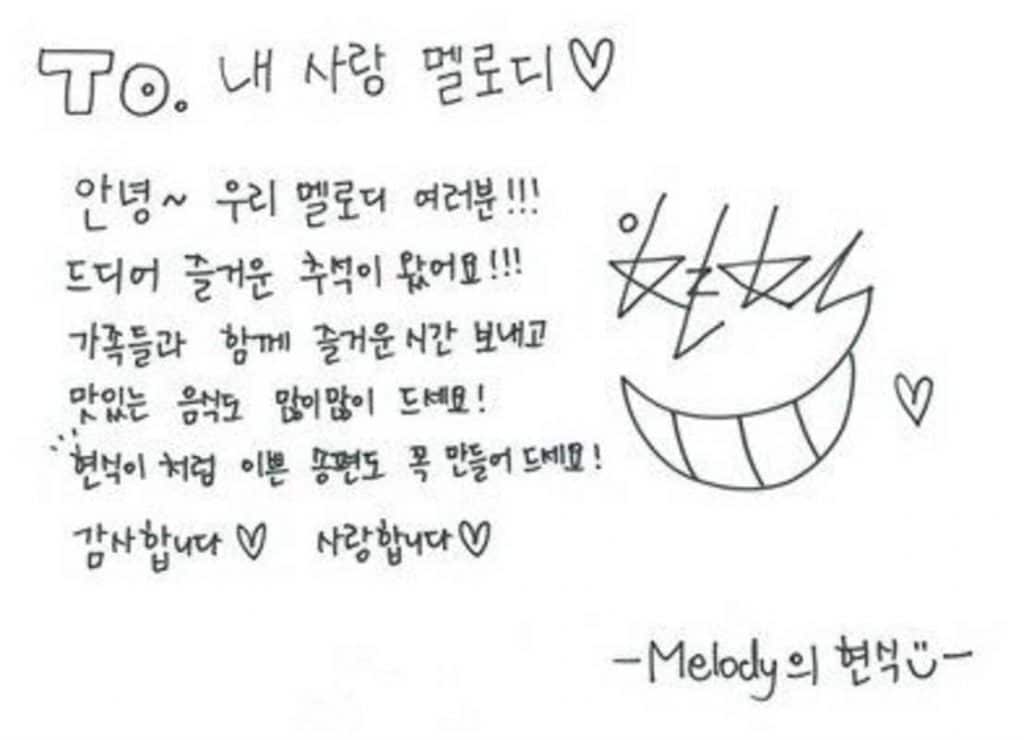 To. 내 사랑 멜로디♡
안녕~ 우리 멜로디 여러분!!!
드디어 즐거운 추석이 왔어요!!!
가족들과 함께 즐거운 시간 보내고
맛있는 음식도 많이많이 드세요!
현식이처럼 이쁜 송편도 꼭 만들어 드세요!
감사합니다♡ 사랑합니다♡
-Melody의 현식-